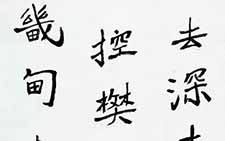 去深
控樊
畿甸